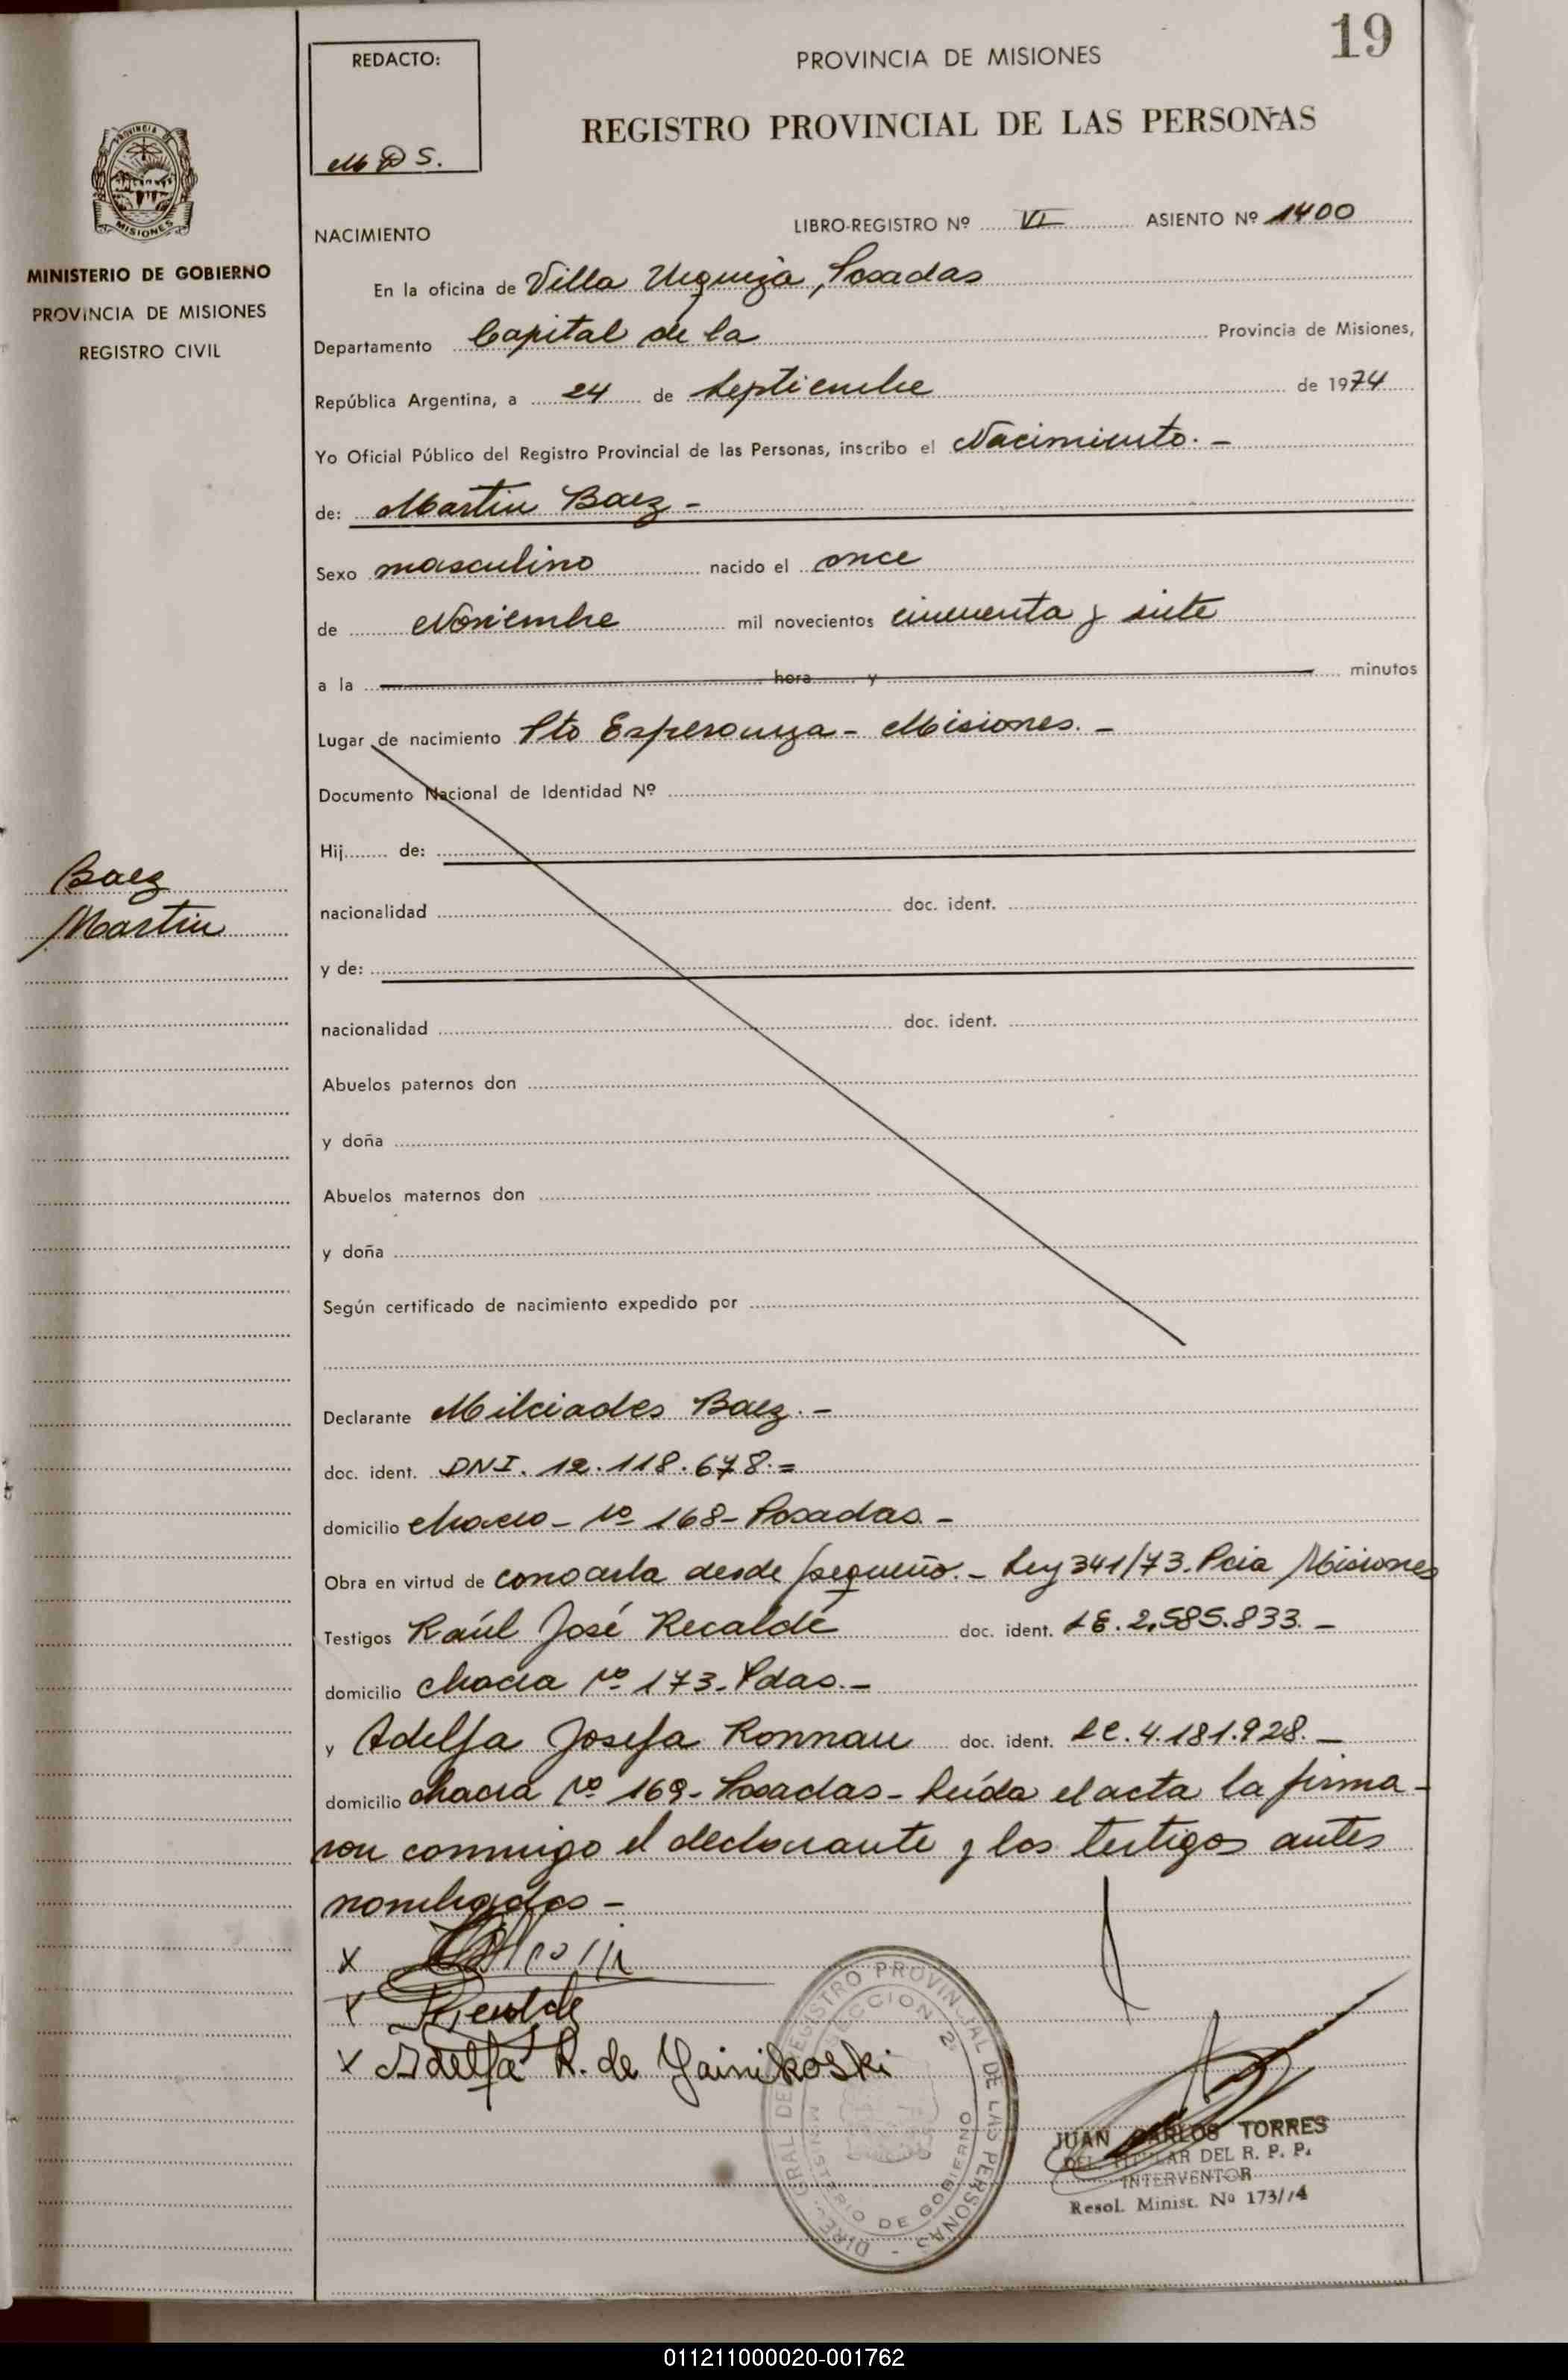 19
REDACTO:
PROVINCIA DE MISIONES
REGISTRO PROVINCIAL DE LAS PERSONAS
PROVINCIA DE
MISIONES
MINISTERIO DE GOBIERNO
PROVINCIA DE MISIONES
REGISTRO CIVIL
NACIMIENTO
LIBRO-REGISTRO Nº VI ASIENTO Nº 1400
En la oficina de Villa Urquiza, Posadas
Departamento Capital de la Provincia de Misiones,
República Argentina, a 24 de Septiembre de 1974
Yo Oficial Público del Registro Provincial de las Personas, inscribo el Nacimiento. -
de: Martin Baez -
Sexo masculino nacido el once
de Noviembre mil novecientos cincuenta y siete
a la hora y minutos
Lugar de nacimiento Pto Esperanza - Misiones. -
Documento Nacional de Identidad Nº
Hij de:
Baez
Martin
nacionalidad doc. ident.
y de:
nacionalidad doc. ident.
Abuelos paternos don
y doña
Abuelos maternos don
y doña
Según certificado de nacimiento expedido por
Declarante Milciades Baez. -
doc. ident. DNI. 12.118.678. =
domicilio chacra - Nº 168 - Posadas. -
Obra en virtud de conocerla desde pequeño. - Ley 341/73. Pcia Misiones
Testigos Raúl José Recalde doc. ident. LE. 2.585.833. -
domicilio chacra Nº 173. Pdas. -
y Adelfa Josefa Ronnau doc. ident. LC. 4.181.928. -
domicilio chacra Nº 169 - Posadas - Leída el acta la firma-
ron conmigo el declarante y los testigos antes
nombrados -
x
x Recalde
x Adelfa R. de Yainikoski
DIREC. GRAL DEL REGISTRO PROVINCIAL DE LAS PERSONAS -
SECCION 2ª
MINISTERIO DE GOBIERNO
JUAN CARLOS TORRES
DEL. TITULAR DEL R. P. P.
INTERVENTOR
Resol. Minist. Nº 173/74
011211000020-001762